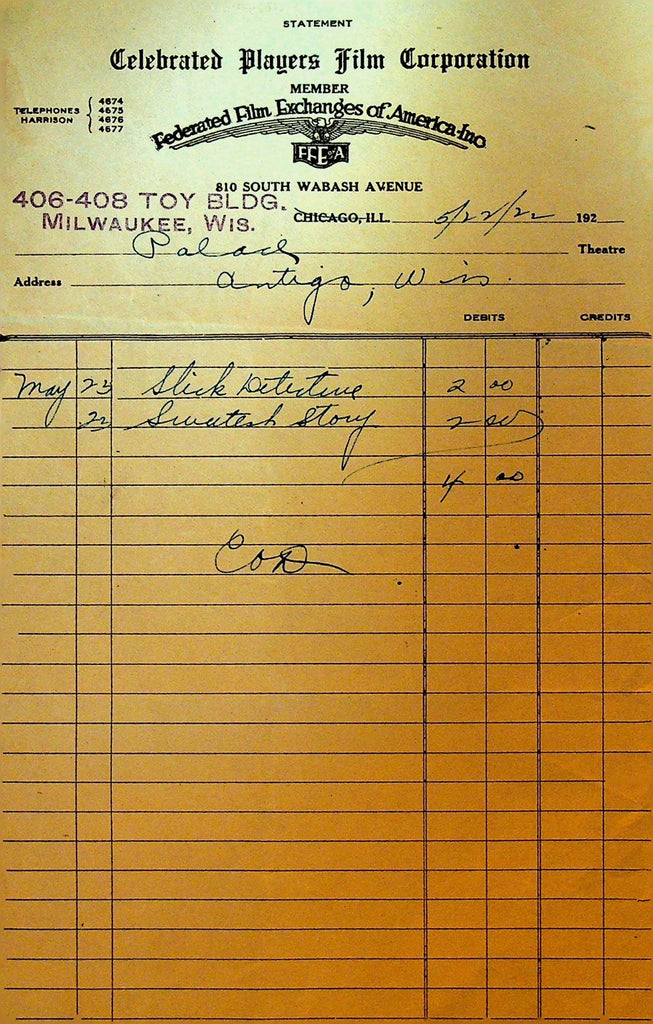 STATEMENT
Celebrated Players Film Corporation
MEMBER
TELEPHONES HARRISON { 4674 4675 4676 4677
Federated Film Exchanges of America-Inc
F.F.E. of A
810 SOUTH WABASH AVENUE
406-408 TOY BLDG.
MILWAUKEE, WIS.
CHICAGO, ILL. 5/22/22 192
Palace Theatre
Address Antigo, Wis.
DEBITS CREDITS
May 23 Slick Detective 2 00
Story 2 00
4 00
COD